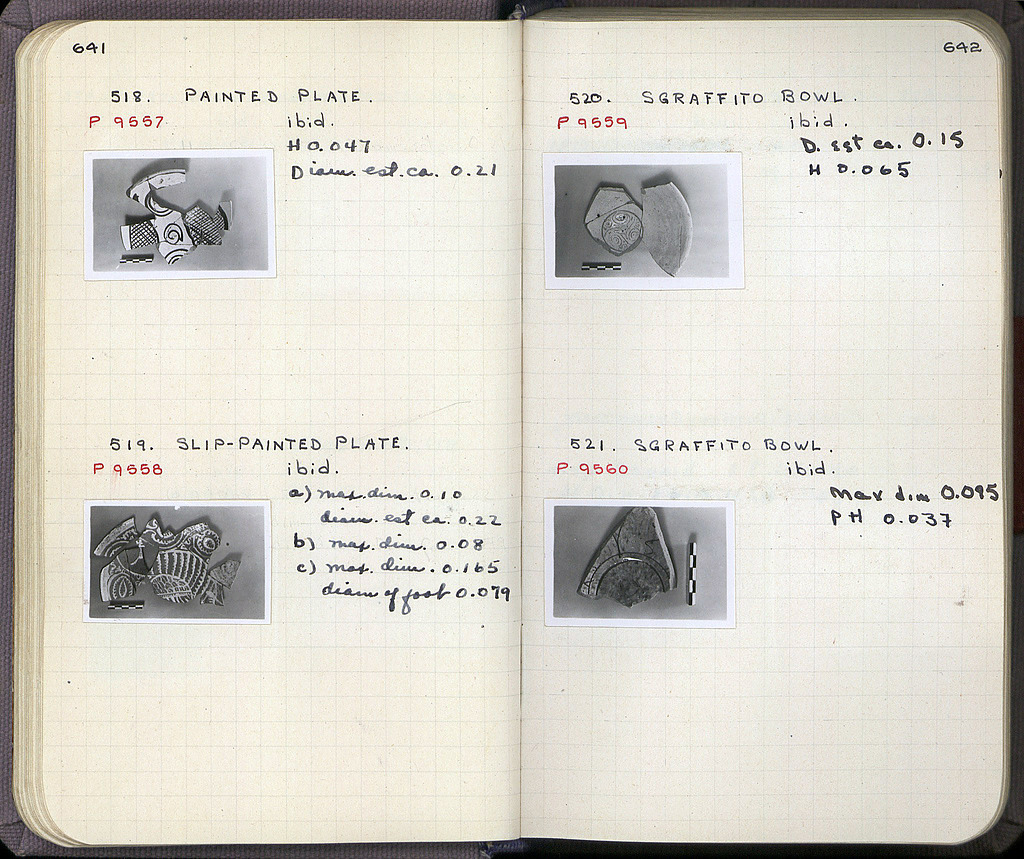 641
518. PAINTED PLATE.
P 9557 ibid.
H 0.047
Diam. est. ca. 0.21
519. SLIP-PAINTED PLATE.
P 9558 ibid.
a) max. dim. 0.10
diam. est ca. 0.22
b) max. dim. 0.08
c) max. dim. 0.165
diam of foot 0.079
642
520. SGRAFFITO BOWL.
P 9559 ibid.
D. est ca. 0.15
H 0.065
521. SGRAFFITO BOWL.
P 9560 ibid.
Max dim 0.095
PH 0.037